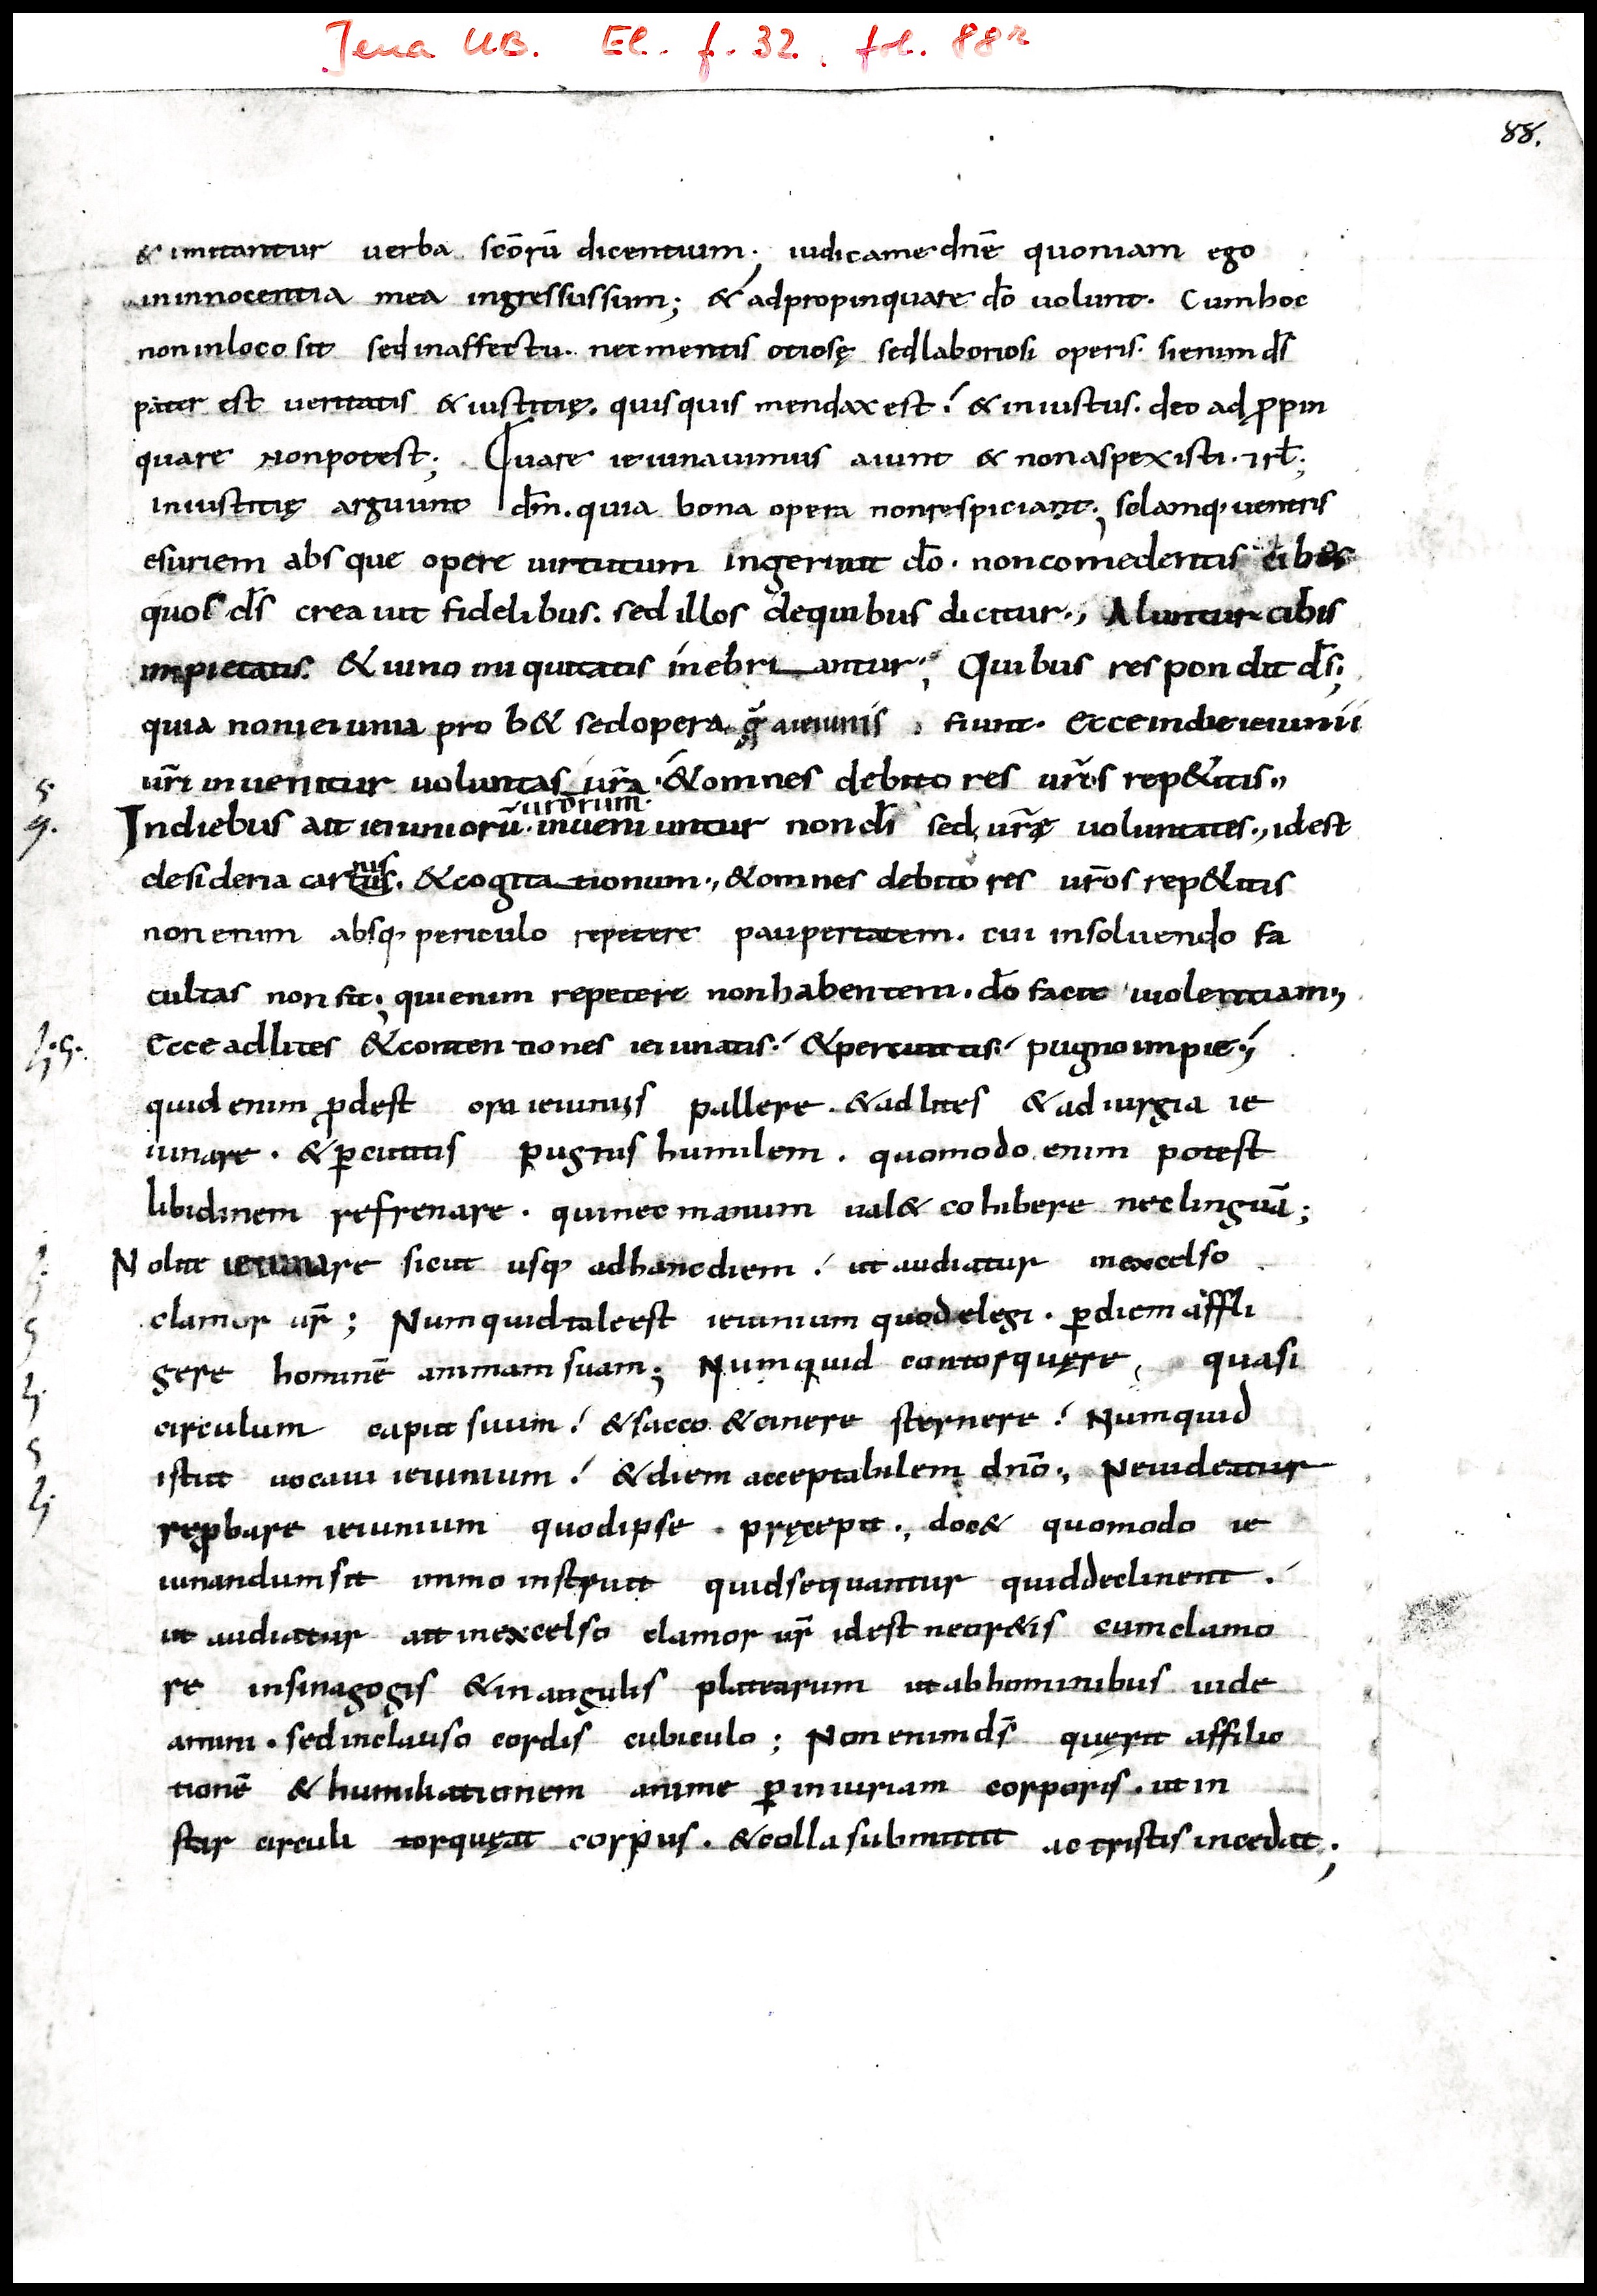 Jena UB. El. f. 32. fol. 88r
88.
& imitantur uerba scōrū dicentium; iudica me dnē quoniam ego
in innocentia mea ingressus sum; & adpropinquare dō uolunt. Cum hoc
non in loco sit sed in affectu. nec mentis otiosę sed laboriosi operis. si enim ds̄
pater est ueritatis & iustitię. quisquis mendax est & iniustus. deo adꝓpin
quare non potest; Quare ieiunauimus aiunt & non aspexisti. rł;
iniustitię arguunt dm̄. quia bona opera non respiciant; solamq; uentris
esuriem absque opere uirtutum ingerunt dō. non comedentis cibos
quos ds̄ creauit fidelibus. sed illos de quibus dicitur., Aluntur cibis
impietatis. & uino iniquitatis inebriantur; Quibus respondit ds̄;
quia non ieiunia prob& sed opera q̄ a ieiuniis fiunt. Ecce in die ieiunii
uri̅ inuenitur uoluntas ura̅. & omnes debitores uro̅s rep&itis.,
In diebus ait ieiuniorū urorum̅. inueniuntur non di̅ sed urę̅ uoluntates., id est
desideria carnis. & cogitationum., & omnes debitores uro̅s rep&itis
non enim absq; periculo repetere paupertatem. cui in soluendo fa
cultas non sit; qui enim repetere non habentem. dō facit uiolentiam.,
Ecce ad lites & contentiones ieiunatis. & percutitis pugno impie.,
quid enim ꝓdest ora ieiuniis pallere. & ad lites & ad iurgia ie
iunare. & ꝑcutitis pugnis humilem. quomodo enim potest
libidinem refrenare. qui nec manum ual& cohibere nec linguā;
Nolite ieiunare sicut usq; ad hanc diem. ut audiatur in excelso
clamor ur̅; Numquid tale est ieiunium quod elegi. ꝑ diem affli
gere hominē animam suam; Numquid contorquęre quasi
circulum caput suum. & sacco & cinere sternere. Numquid
istut uocaui ieiunium. & diem acceptabilem dnō., Ne uideatur
reꝓbare ieiunium quod ipse pręcepit., doc& quomodo ie
iunandum sit immo instruit quid sequantur quid declinent.
ut audiatur ait in excelso clamor ur̅ id est ne or&is cum clamo
re in sinagogis & in angulis platearum ut ab hominibus uide
amini. sed in clauso cordis cubiculo; Non enim ds̄ quęrit afflic
tionē & humiliationem anime ꝑ iniuriam corporis. ut in
star circuli torquęat corpus. & colla submittit ac tristis incedat;